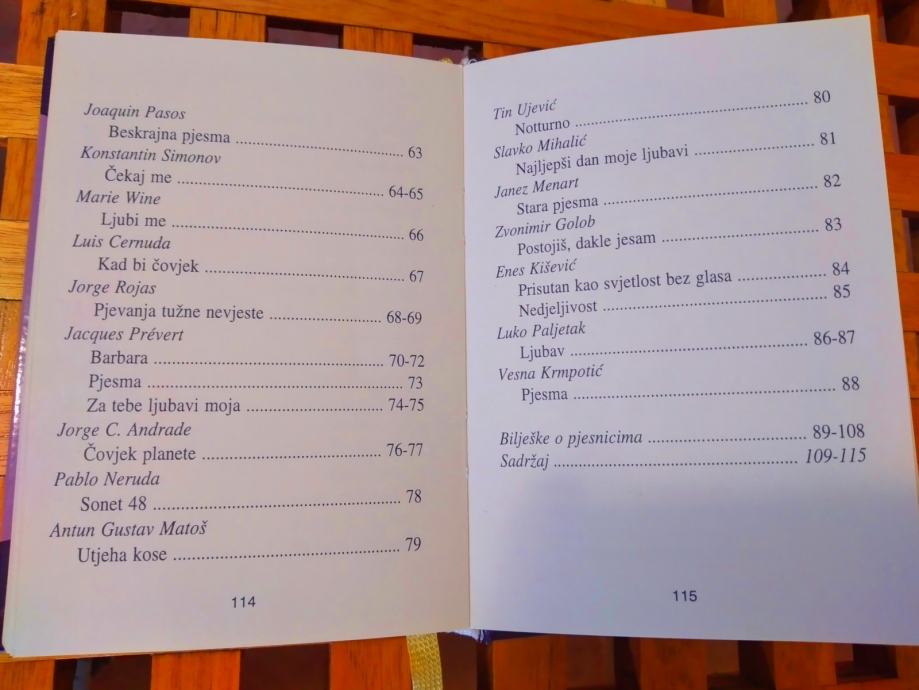 Joaquin Pasos
Beskrajna pjesma ........................................ 63
Konstantin Simonov
Čekaj me ........................................ 64-65
Marie Wine
Ljubi me ........................................ 66
Luis Cernuda
Kad bi čovjek ........................................ 67
Jorge Rojas
Pjevanja tužne nevjeste ........................................ 68-69
Jacques Prévert
Barbara ........................................ 70-72
Pjesma ........................................ 73
Za tebe ljubavi moja ........................................ 74-75
Jorge C. Andrade
Čovjek planete ........................................ 76-77
Pablo Neruda
Sonet 48 ........................................ 78
Antun Gustav Matoš
Utjeha kose ........................................ 79
114
Tin Ujević
Notturno ........................................ 80
Slavko Mihalić
Najljepši dan moje ljubavi ........................................ 81
Janez Menart
Stara pjesma ........................................ 82
Zvonimir Golob
Postojiš, dakle jesam ........................................ 83
Enes Kišević
Prisutan kao svjetlost bez glasa ........................................ 84
Nedjeljivost ........................................ 85
Luko Paljetak
Ljubav ........................................ 86-87
Vesna Krmpotić
Pjesma ........................................ 88
Bilješke o pjesnicima ........................................ 89-108
Sadržaj ........................................ 109-115
115